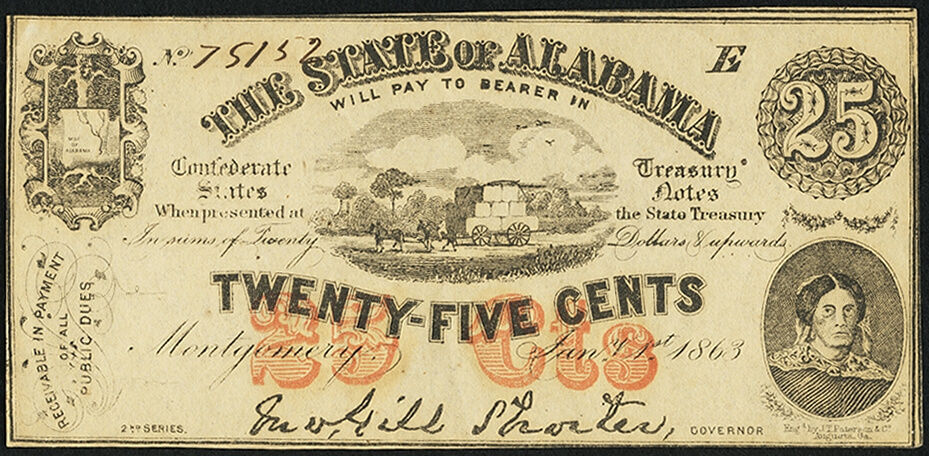 No. 75152
E
THE STATE OF ALABAMA
WILL PAY TO BEARER IN
25
MAP
OF
ALABAMA
Confederate Treasury
States Notes
When presented at the State Treasury
In sums of Twenty Dollars & upwards
TWENTY-FIVE CENTS
25 Cts
Montgomery, Jany. 1st 1863
RECEIVABLE IN PAYMENT
OF ALL
PUBLIC DUES
2ND SERIES.
Jno Gill Shorter,
GOVERNOR
Engd. by J.T. Paterson & Co.
Augusta, Ga.